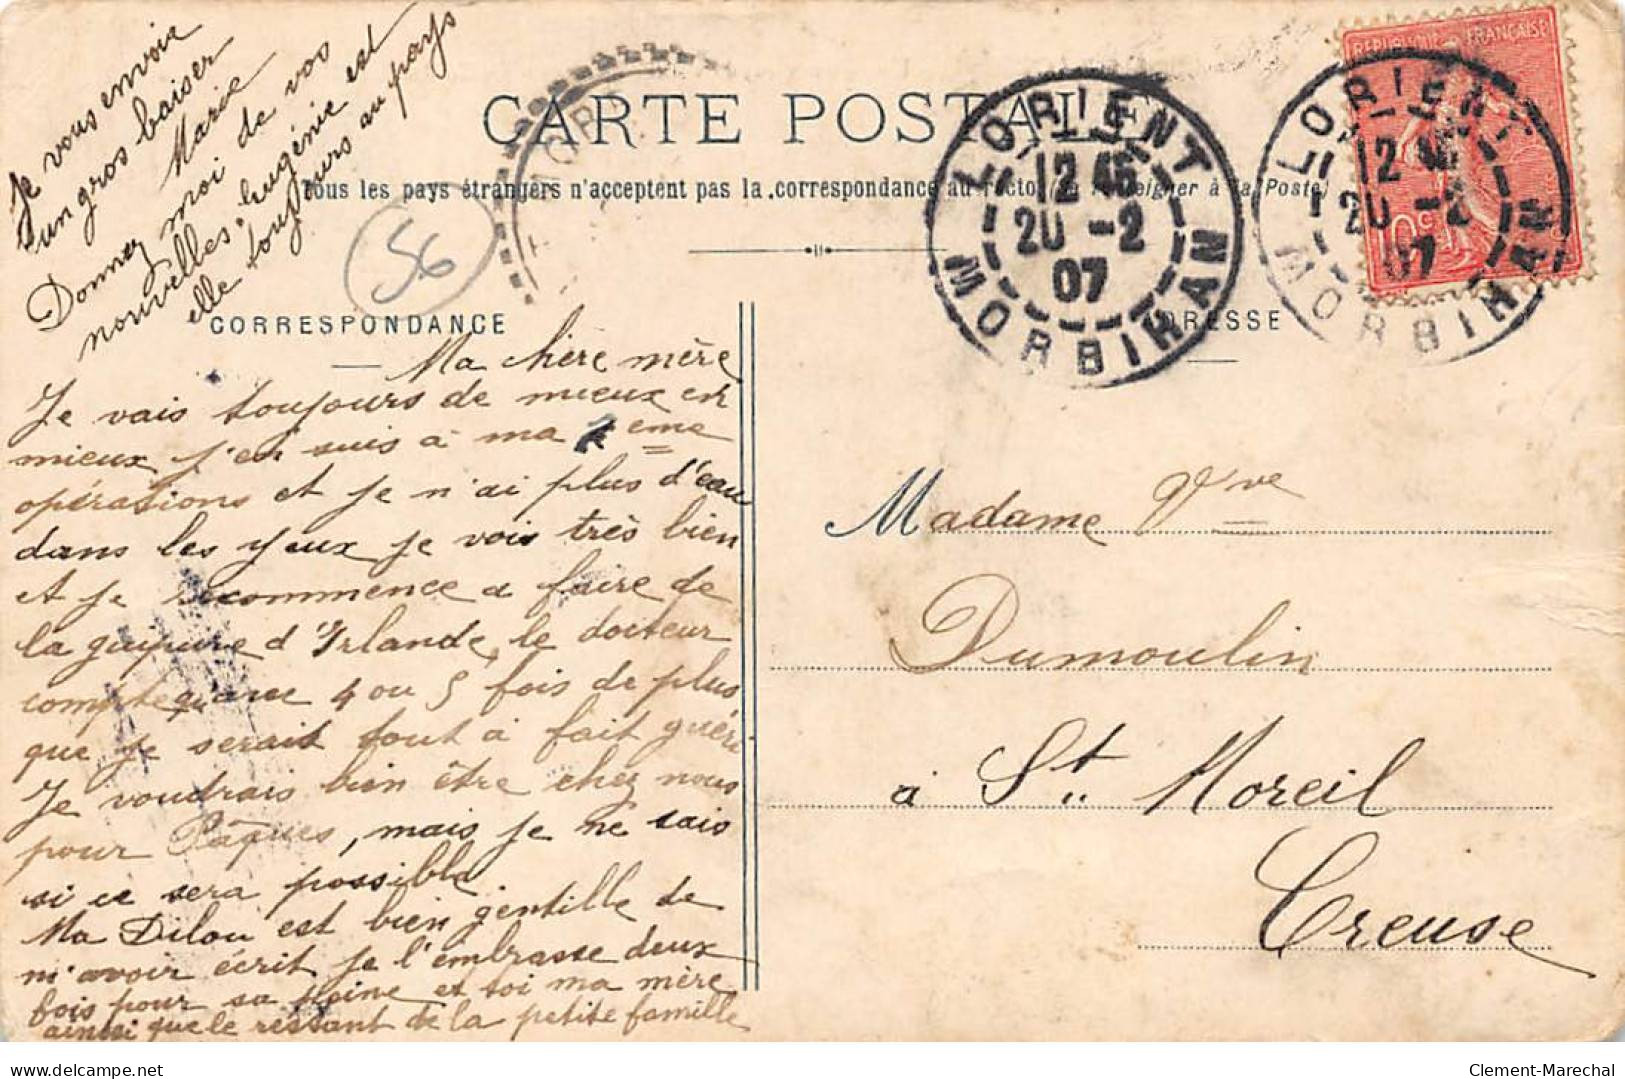 Je vous envoie
un gros baiser
Marie
Donnez moi de vos
nouvelles, heugénie est
elle toujours au pays
56
CARTE POSTALE
Tous les pays étrangers n'acceptent pas la correspondance au recto (Se renseigner à la Poste)
LORIENT
12 45
20 -2
07
MORBIHAN
REPUBLIQUE FRANÇAISE
10c
LORIENT
12 45
20 -2
07
MORBIHAN
CORRESPONDANCE
ADRESSE
Ma chère mère
Je vais toujours de mieux en
mieux j'en suis à ma eme
opérations et je n'ai plus d'eau
dans les yeux je vois très bien
et je recommence a faire de
la guipure d'Irlande, le docteur
compte qu'avec 4 ou 5 fois de plus
que je serait tout à fait guéri
Je voudrais bien être chez nous
pour Pâques, mais je ne sais
si ce sera possible
Ma Dilou est bien gentille de
m'avoir écrit je l'embrasse deux
fois pour sa peine et toi ma mère
ainsi que le restant de la petite famille
Madame Vve
Dumoulin
à St. Moreil
Creuse
www.delcampe.net
Clement-Marechal